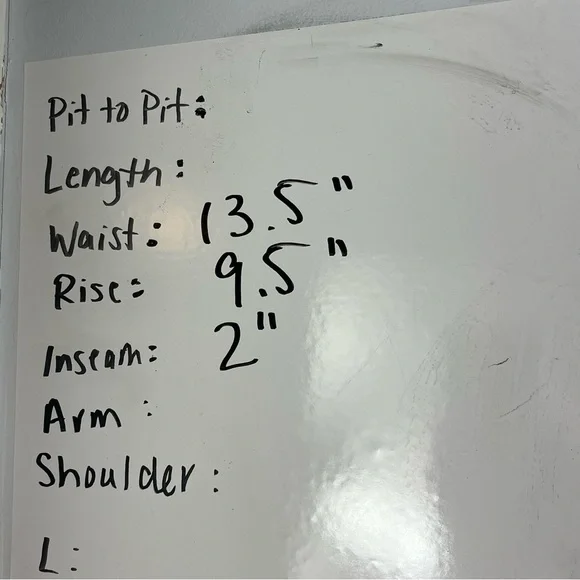 Pit to Pit:
Length:
Waist: 13.5"
Rise: 9.5"
Inseam: 2"
Arm:
Shoulder:
L: